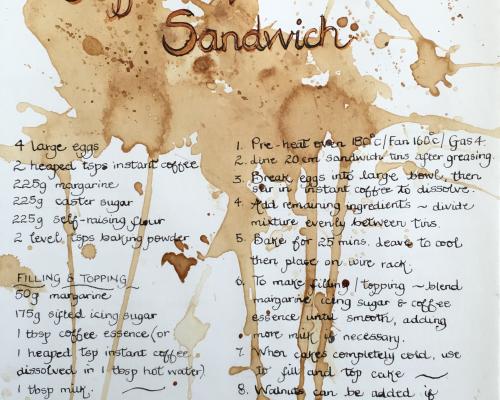 Sandwich
4 large eggs
2 heaped tsps instant coffee
225g margarine
225g caster sugar
225g self-raising flour
2 level tsps baking powder
FILLING & TOPPING
50g margarine
175g sifted icing sugar
1 tbsp coffee essence (or
1 heaped tsp instant coffee
dissolved in 1 tbsp hot water)
1 tbsp milk.
1. Pre-heat oven 180°c/Fan 160c/Gas 4.
2. Line 20cm sandwich tins after greasing.
3. Break eggs into large bowl, then
stir in instant coffee to dissolve.
4. Add remaining ingredients ~ divide
mixture evenly between tins.
5. Bake for 25 mins. Leave to cool
then place on wire rack.
6. To make filling/topping ~ blend
margarine, icing sugar & coffee
essence until smooth, adding
more milk if necessary.
7. When cakes completely cold, use
to fill and top cake ~
8. Walnuts can be added if